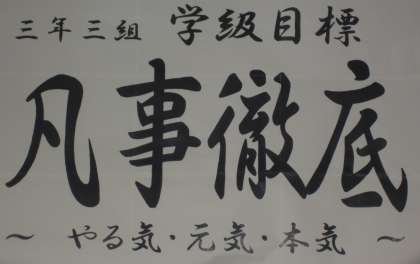 三年三組 学級目標
凡事徹底
～ やる気・元気・本気 ～